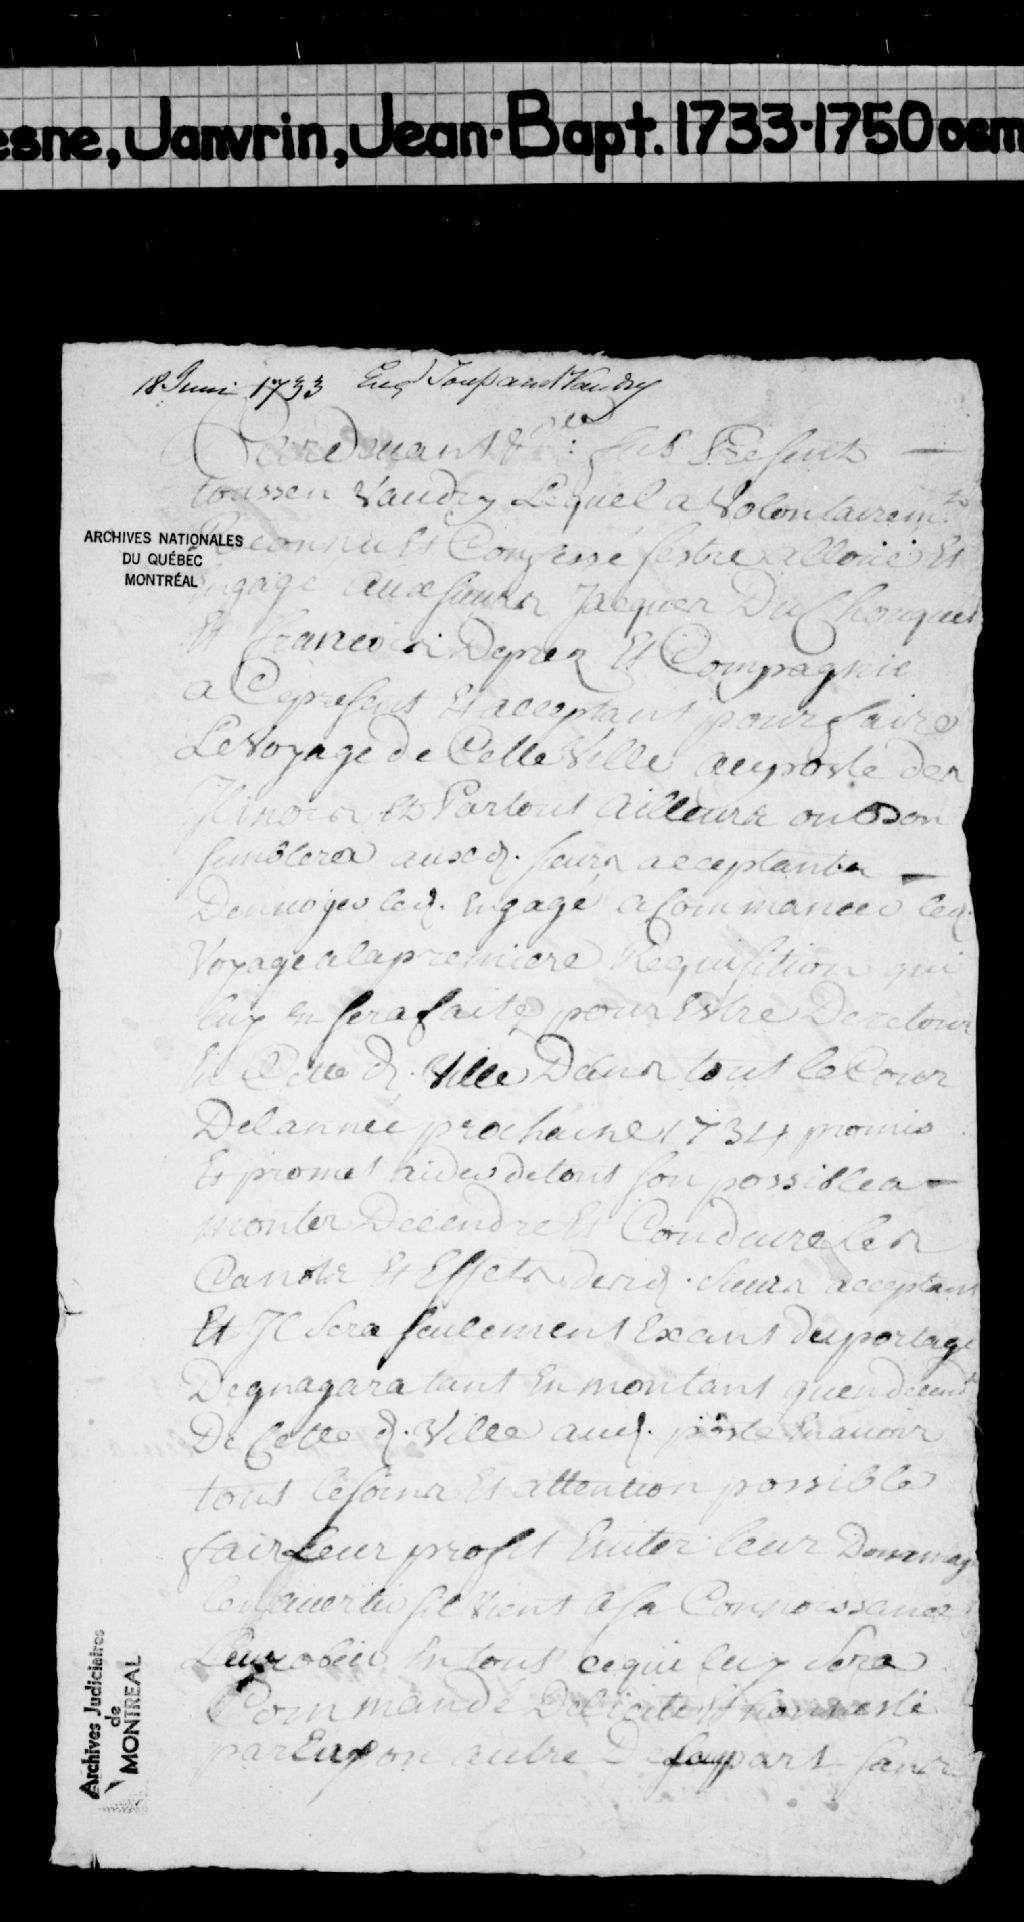 esne, Janvrin, Jean-Bapt. 1733-1750 osm
18 Juin 1733 Eng.t Toussant Vaudry
Pardevant &c.a: fut Present —
toussen Vaudry Lequel a Volontairem.t
Reconnu Et Confessé sestre alloüé Et
Engagé aux sieurs Jacques DuChouquet
Et francois Deprez Et Compagnie
a Ce present Et acceptant pour faire
Le Voyage de Cette Ville au poste des
Ilinois Et Partout ailleurs ou bon
semblera auxd. sieurs acceptants —
Denvoyer led. Engagé a Commancer led.
Voyage a la premiere Requisition qui
luy En sera faite pour Estre De retour
En Cette d. Ville Dans tout le Cour
De lannée prochaine 1734 promis
Et promet aider de tout son possible a —
monter Decendre Et Conduire Les
Canots Et Effets desd. sieurs acceptant
Et Il sera seulement Exant du portage
De gnagara tant En montant quen decend.t
De Cette d. Ville aud. poste En avoir
tout le soins Et attention possible
fair Leur profit Eviter leur Dommag
les avertir sil vient a sa Connoissance
Leur obeir En tout ce qui luy sera
Commandé De licite Et honneste
par Eux ou autre De sa part sans
ARCHIVES NATIONALES
DU QUÉBEC
MONTRÉAL
Archives Judiciaires
de
MONTREAL